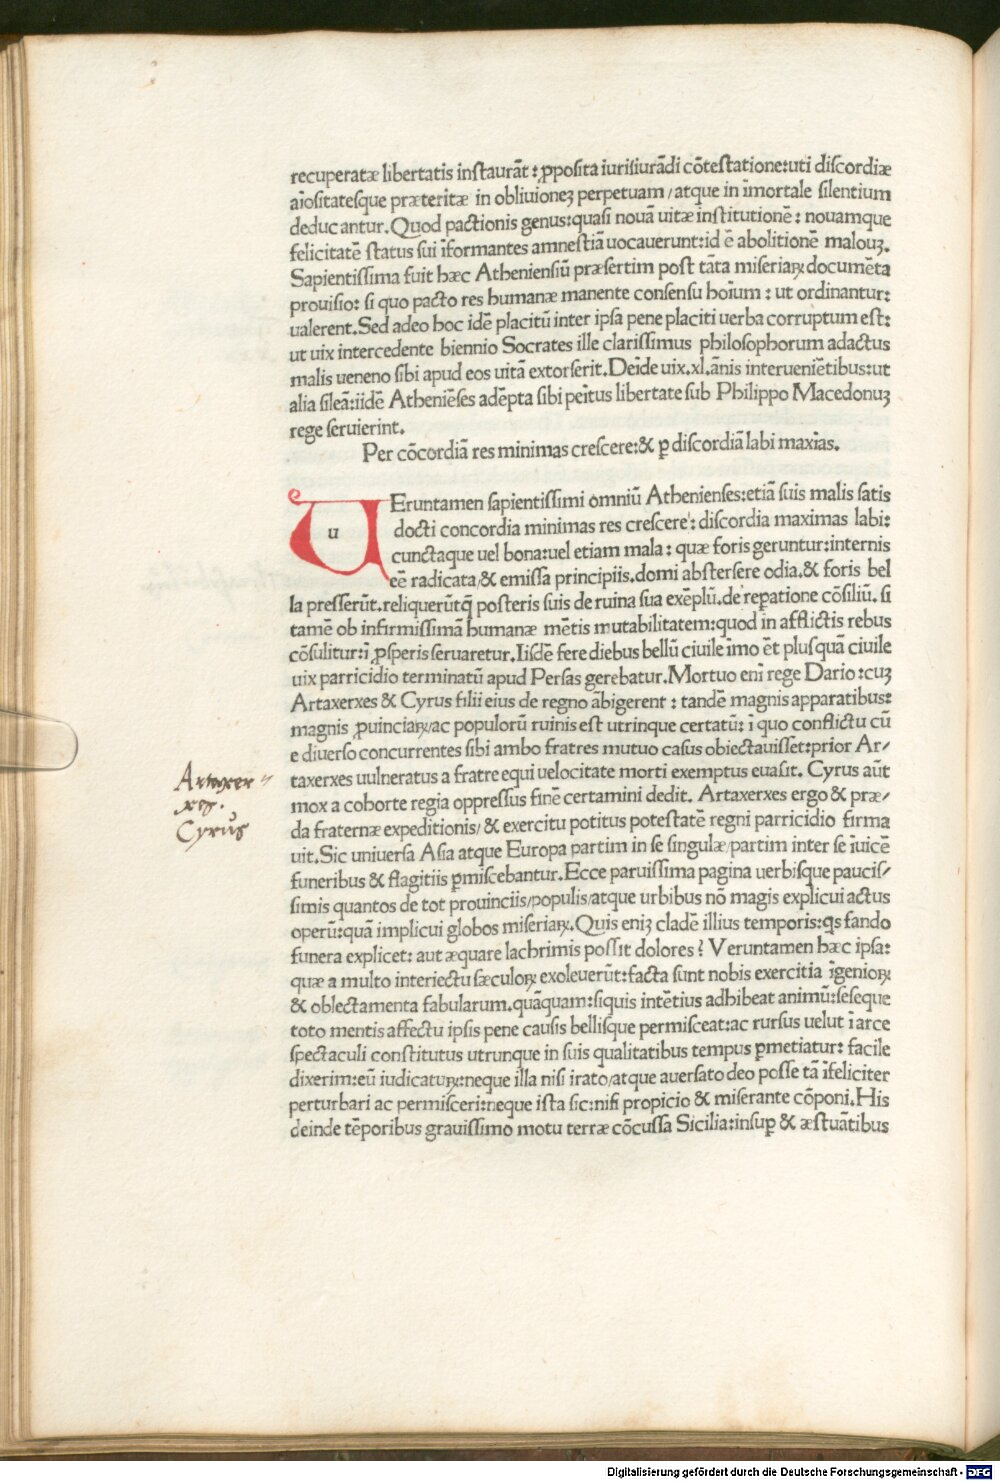 recuperatæ libertatis instaurāt: ꝓposita iurisiurādi cōtestatione:uti discordiæ
aīositatesque præteritæ in obliuioneꝫ perpetuam/atque in īmortale silentium
deducantur. Quod pactionis genus:quasi nouā uitæ institutionē: nouamque
felicitatē status sui īformantes amnestiā uocauerunt:id ē abolitionē malouꝫ.
Sapientissima fuit hæc Atheniensiū præsertim post tāta miseriaꝝ documēta
prouisio: si quo pacto res humanæ manente consensu hoīum: ut ordinantur:
ualerent. Sed adeo hoc idē placitū inter ipsa pene placiti uerba corruptum est:
ut uix intercedente biennio Socrates ille clarissimus philosophorum adactus
malis ueneno sibi apud eos uitā extorserit. Deīde uix.xl.ānis interueniētibus:ut
alia sileā:iidē Atheniēses adēpta sibi peītus libertate sub Philippo Macedonuꝫ
rege seruierint.
Per cōcordiā res minimas crescere:& ꝑ discordiā labi maxīas.
u
UEruntamen sapientissimi omniū Athenienses:etiā suis malis satis
docti concordia minimas res crescere: discordia maximas labi:
cunctaque uel bona:uel etiam mala: quæ foris geruntur:internis
eē radicata/& emissa principiis.domi abstersere odia.& foris bel
la presserūt.reliquerūtq̄ posteris suis de ruina sua exēplū.de reꝑatione cōsiliū. si
tamē ob infirmissimā humanæ mētis mutabilitatem:quod in afflictis rebus
cōsulitur:ī ꝓsperis seruaretur. Iisdē fere diebus bellū ciuile īmo ēt plusquā ciuile
uix parricidio terminatū apud Persas gerebatur. Mortuo enī rege Dario:cuꝫ
Artaxerxes & Cyrus filii eius de regno ābigerent: tandē magnis apparatibus:
magnis ꝓuinciaꝝ/ac populorū ruinis est utrinque certatū: ī quo conflictu cū
e diuerso concurrentes sibi ambo fratres mutuo casus obiectauisset:prior Ar/
taxerxes uulneratus a fratre equi uelocitate morti exemptus euasit. Cyrus aūt
mox a cohorte regia oppressus finē certamini dedit. Artaxerxes ergo & præ/
da fraternæ expeditionis/& exercitu potitus potestatē regni parricidio firma
uit. Sic uniuersa Asia atque Europa partim in se singulæ/partim inter se īuicē
funeribus & flagitiis ꝑmiscebantur. Ecce paruissima pagina uerbisque paucis/
simis quantos de tot prouinciis/populis/atque urbibus nō magis explicui actus
operū:quā implicui globos miseriaꝝ. Quis eniꝫ cladē illius temporis:q̄s fando
funera explicet: aut æquare lachrimis possit dolores? Veruntamen hæc ipsa:
quæ a multo interiectu sæculoꝝ exoleuerūt:facta sunt nobis exercitia īgenioꝝ
& oblectamenta fabularum.quāquam:siquis intētius adhibeat animū:seseque
toto mentis affectu ipsis pene causis bellisque permisceat:ac rursus uelut ī arce
spectaculi constitutus utrunque in suis qualitatibus tempus ꝑmetiatur: facile
dixerim:eū iudicatuꝝ:neque illa nisi irato/atque auersato deo posse tā īfeliciter
perturbari ac permisceri:neque ista sic:nisi propicio & miserante cōponi. His
deinde tēporibus grauissimo motu terræ cōcussa Sicilia:insuꝑ & æstuātibus
Artaxer=
xes.
Cyrus
Digitalisierung gefördert durch die Deutsche Forschungsgemeinschaft - DFG